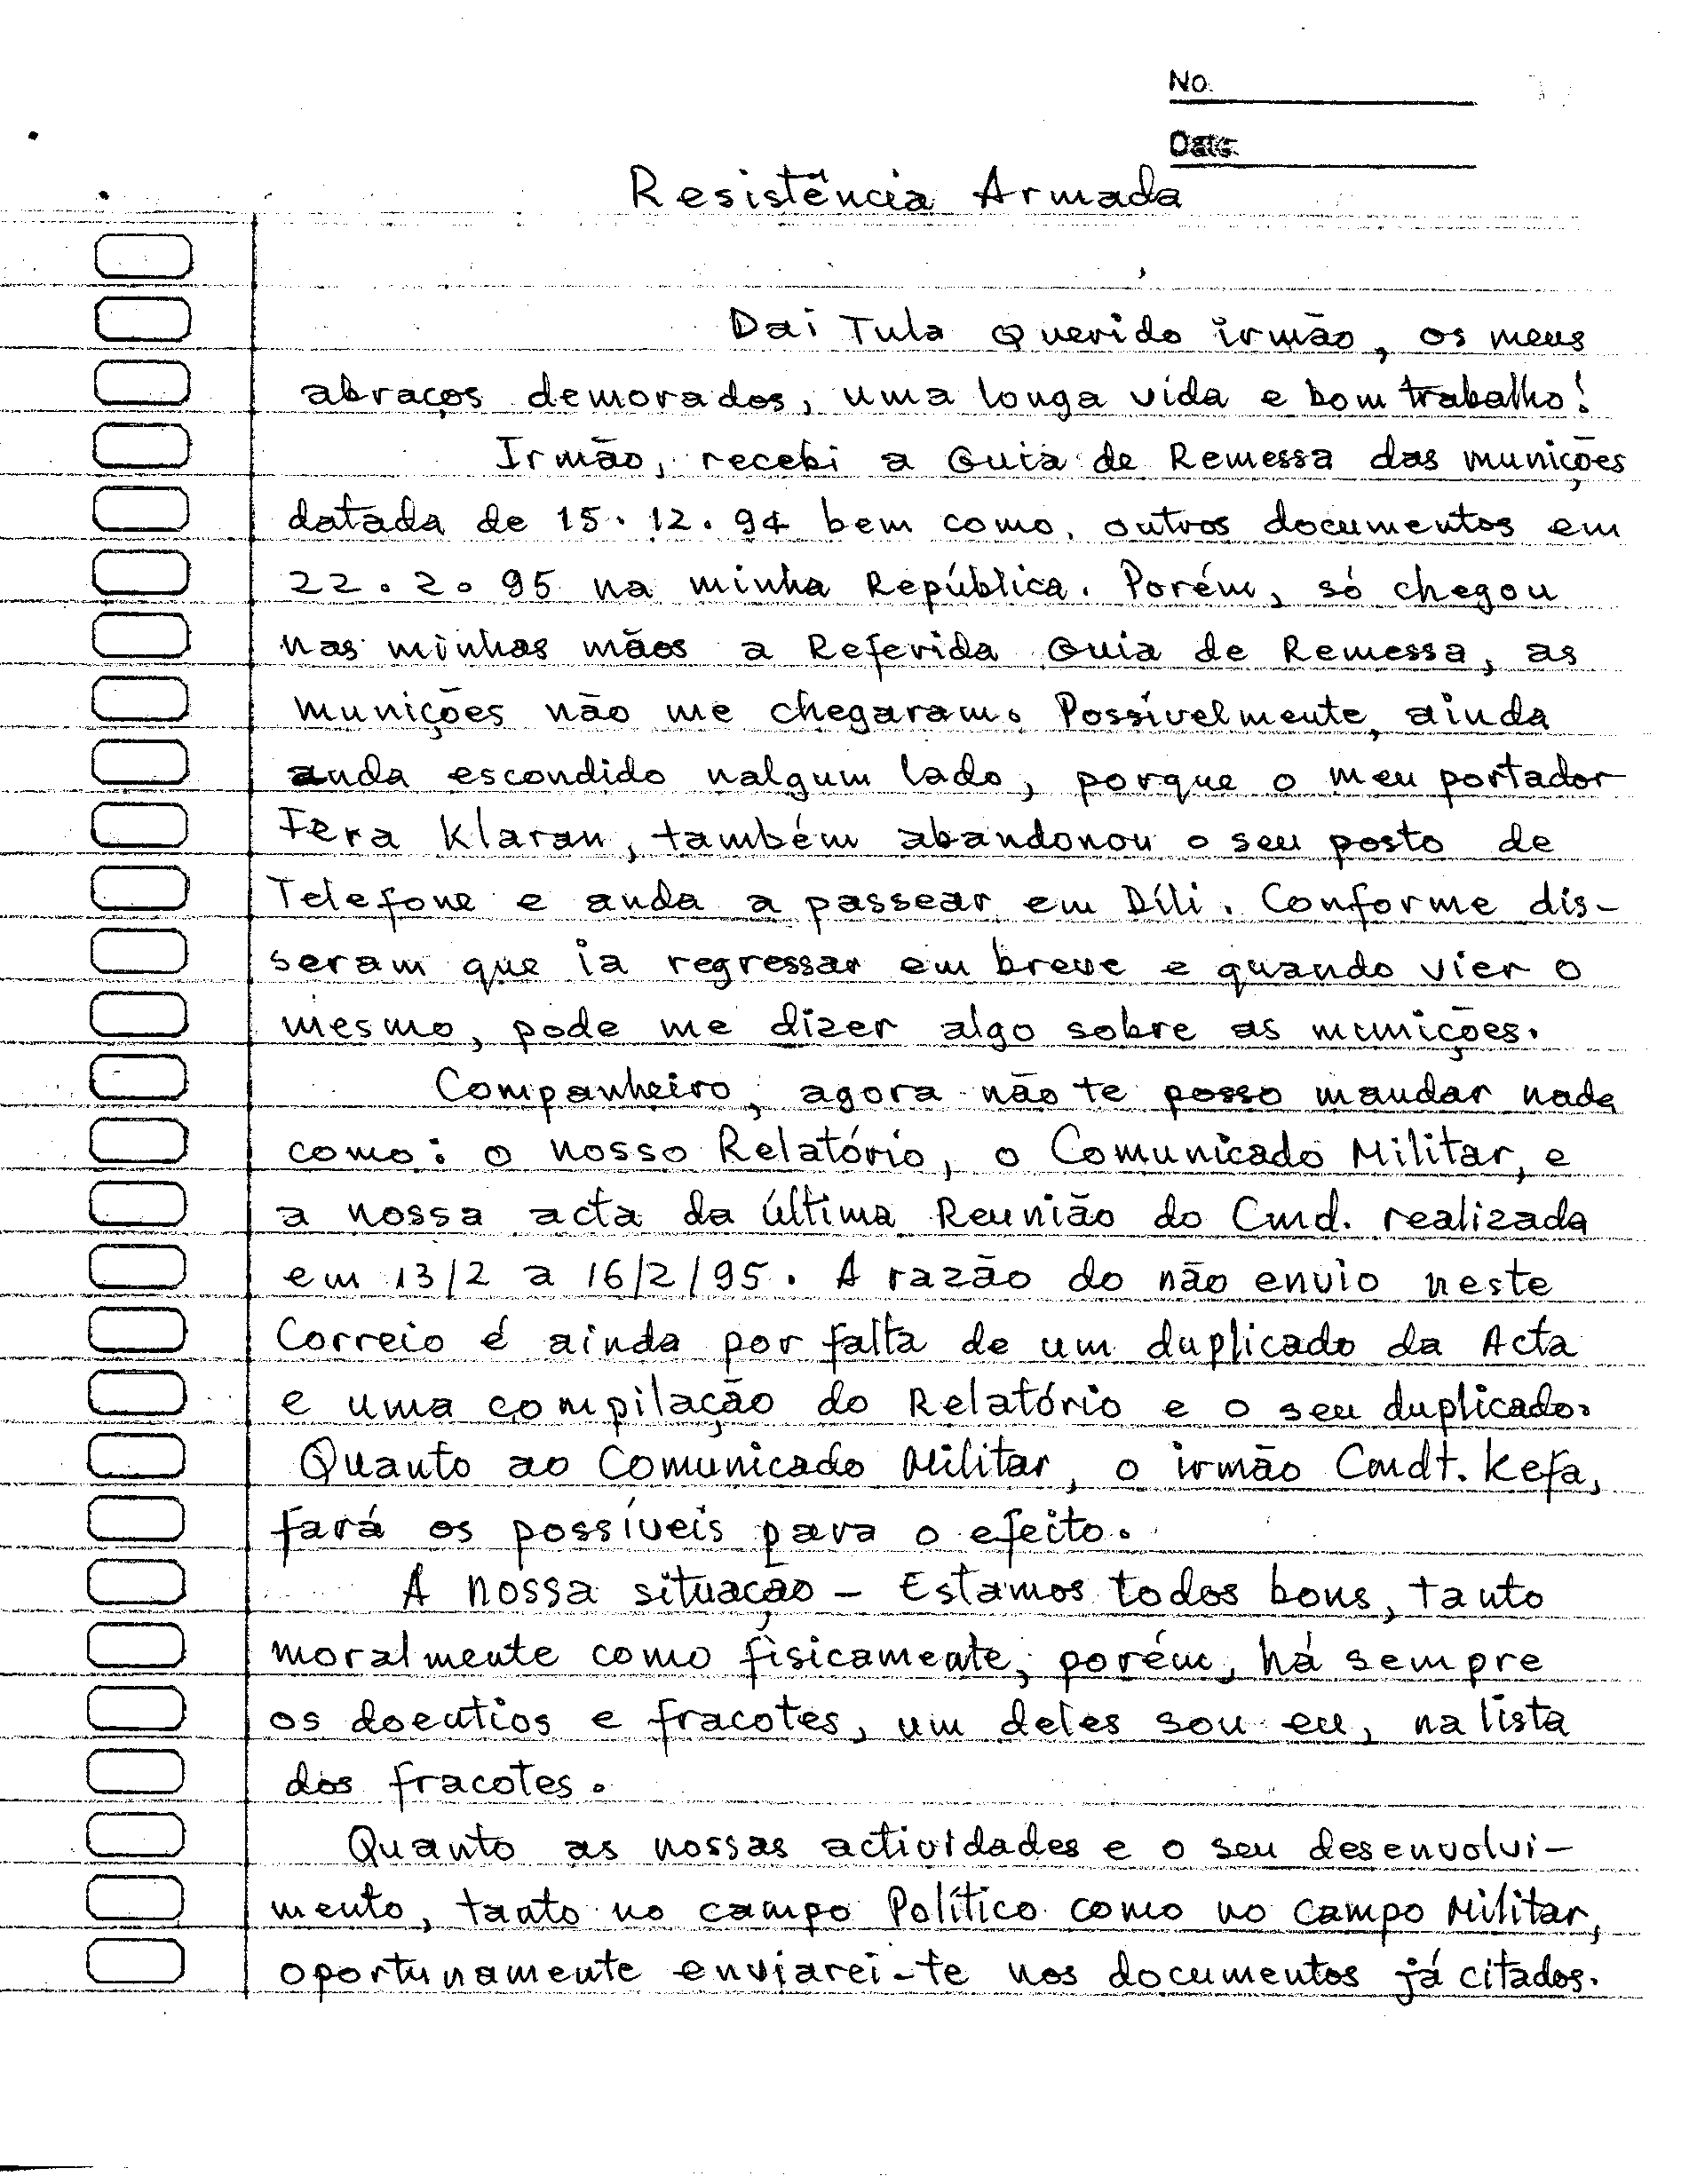 No.
Date
Resistência Armada
Dai Tula Querido irmão, os meus
abraços demorados, uma longa vida e bom trabalho!
Irmão, recebi a Guia de Remessa das munições
datada de 15.12.94 bem como, outros documentos em
22.2.95 na minha República. Porém, só chegou
nas minhas mãos a Referida Guia de Remessa, as
munições não me chegaram. Possívelmente, ainda
anda escondido nalgum lado, porque o meu portador
Fera Klaran, também abandonou o seu posto de
Telefone e anda a passear em Díli. Conforme dis-
seram que ia regressar em breve e quando vier o
mesmo, pode me dizer algo sobre as munições.
Companheiro, agora não te posso mandar nada
como: o nosso Relatório, o Comunicado Militar, e
a nossa acta da última Reunião do Cmd. realizada
em 13/2 a 16/2/95. A razão do não envio neste
Correio é ainda por falta de um duplicado da Acta
e uma compilação do Relatório e o seu duplicado.
Quanto ao Comunicado Militar, o irmão Cmdt. Kefa,
fará os possíveis para o efeito.
A nossa situação - Estamos todos bons, tanto
moralmente como fìsicamente, porém, há sempre
os doentios e fracotes, um deles sou eu, na lista
dos fracotes.
Quanto as nossas actividades e o seu desenvolvi-
mento, tanto no campo Político como no campo Militar,
oportunamente enviarei-te nos documentos já citados.